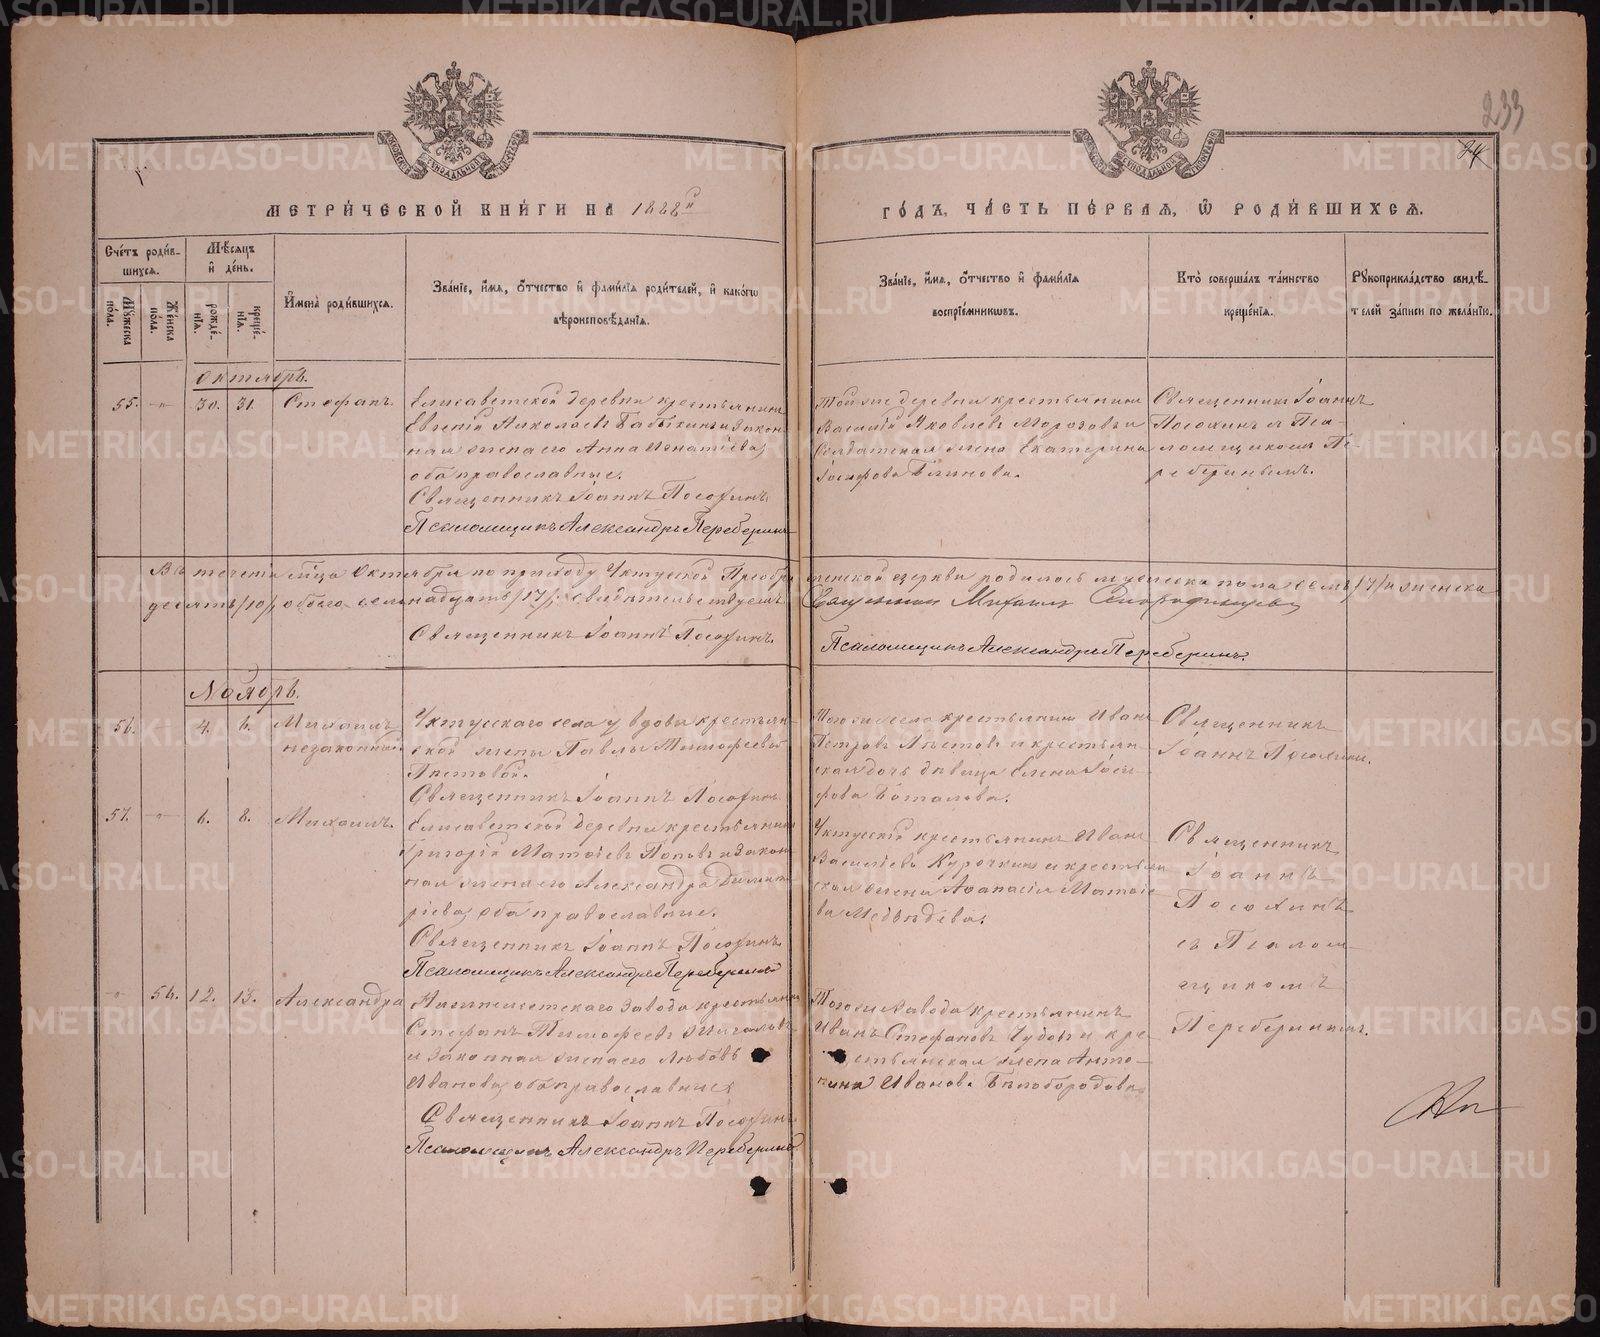 233
24
МЕТРИ́ЧЕСКОЙ КНИ́ГИ НА 1888й
ГО́ДЪ, ЧА́СТЬ ПЕ́РВАЯ, Ѿ РОДИ́ВШИХСЯ.
Сче́тъ роди́в-
шихся.
Мѣ́сяцъ
и́ де́нь.
Мꙋ́жеска
по́ла.
Же́нска
пола.
рожде́-
нїя.
креще́-
нїя.
И҆мена̀ роди́вшихся.
Зва́нїе, и҆́мя, ѻ҆́тчество и҆ фами́лїя роди́телей, и҆ како́гѡ
вѣроисповѣ́данїя.
Зва́нїе, и҆́мя, ѻ҆́тчество и҆ фами́лїя
воспрїе́мникѡвъ.
Кто̀ соверша́лъ та́инство
креще́нїя.
Рꙋкоприкла́дство свидѣ́-
телей за́писи по жела́нїю.
Октябрь.
55. -"- 30. 31. Стефанъ.
Елисаветской деревни крестьянинъ
Евгеній Николаевъ Бабыкинъ и закон-
ная жена его Анна Игнатіева,
оба православные.
Священникъ Іоаннъ Посохинъ.
Псаломщикъ Александръ Переберинъ
Той же деревни крестьянинъ
Василій Яковлевъ Морозовъ и
Солдатская жена Екатерина
Іосифова Блинова.
Священникъ Іоаннъ
Посохинъ и Пса-
ломщикомъ Пе-
реберинымъ.
Въ теченіи мѣсяца Октября по приходу Уктусской Преобра-
женской церкви родилось мужеска пола семь /7/ и женска
десять /10/, обоего семнадцать /17/; свидѣтельствуемъ
Священникъ Михаилъ
Священникъ Іоаннъ Посохинъ.
Псаломщикъ Александръ Переберинъ.
Ноябрь.
56. 4. 6. Михаилъ
незаконный
Уктусскаго села у вдовы крестьян-
ской жены Павлы Тимофеевой
Лѣтовой.
Священникъ Іоаннъ Посохинъ
Того же села крестьянинъ Иванъ
Петровъ Лѣтовъ и крестьян-
ская дочь дѣвица Елена Іоси-
фова Боталова.
Священникъ
Іоаннъ Посохинъ.
57. -"- 6. 8. Михаилъ.
Елисаветской деревни крестьянинъ
Григорій Матѳіевъ Поповъ и закон-
ная жена его Александра Димит-
ріева, оба православные.
Священникъ Іоаннъ Посохинъ.
Псаломщикъ Александръ Переберинъ
Уктусскій крестьянинъ Иванъ
Васильевъ Курочкинъ и крестьян-
ская жена Аѳанасія Матѳіе-
ва Медвѣдева.
Священникъ
Іоаннъ
Посохинъ
съ Псалом-
щикомъ
Переберинымъ.
-"- 56. 12. 13. Александра
Нижнеисетскаго завода крестьянинъ
Стефанъ Тимофеевъ Жигаловъ
и законная жена его Любовь
Иванова, оба православные
Священникъ Іоаннъ Посохинъ
Псаломщикъ Александръ Переберинъ
Того же завода крестьянинъ
Иванъ Стефановъ Чудовъ и кре-
стьянская жена Анто-
нина Иванова Бѣлобородова.
METRIKI.GASO-URAL.RU